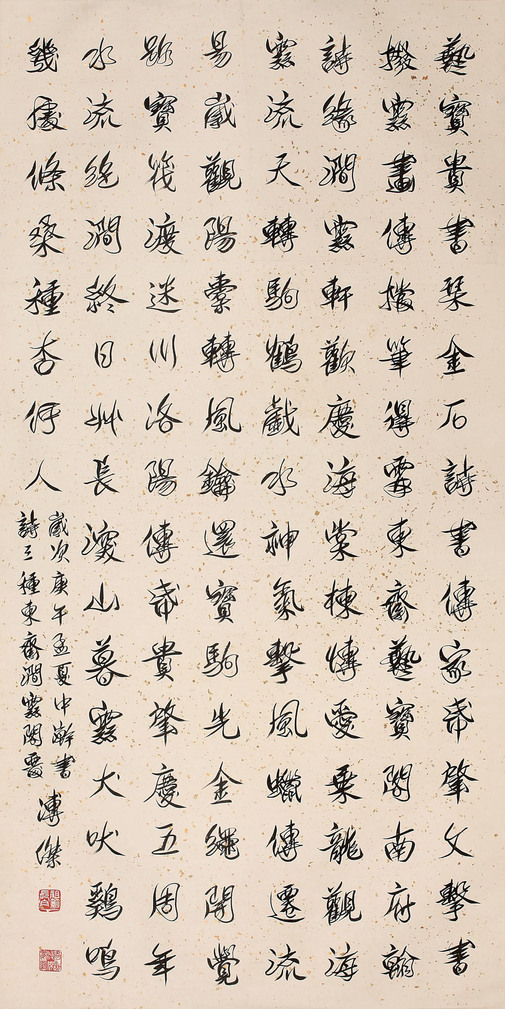 藝寶貴書琹金石詩書傳家希肇文擊書
雲畫傳撥筆得東齋藝寶閣南府翰
詩緣澗雲軒歡慶海棠棟愛乘龍觀海
雲流天轉駒鶴戲水神氣擊風蠟傳遷流
易歲觀陽橐轉風鑰還寶駒光金繩開覺
路寶筏渡迷川洛陽傳希貴肇慶五周年
水流絕澗終日艸長深山暮雲犬吠鷄鳴
幾處條桑種杏何人
歲次庚午孟夏中澣書
詩三種東齋澗雲閣 溥傑